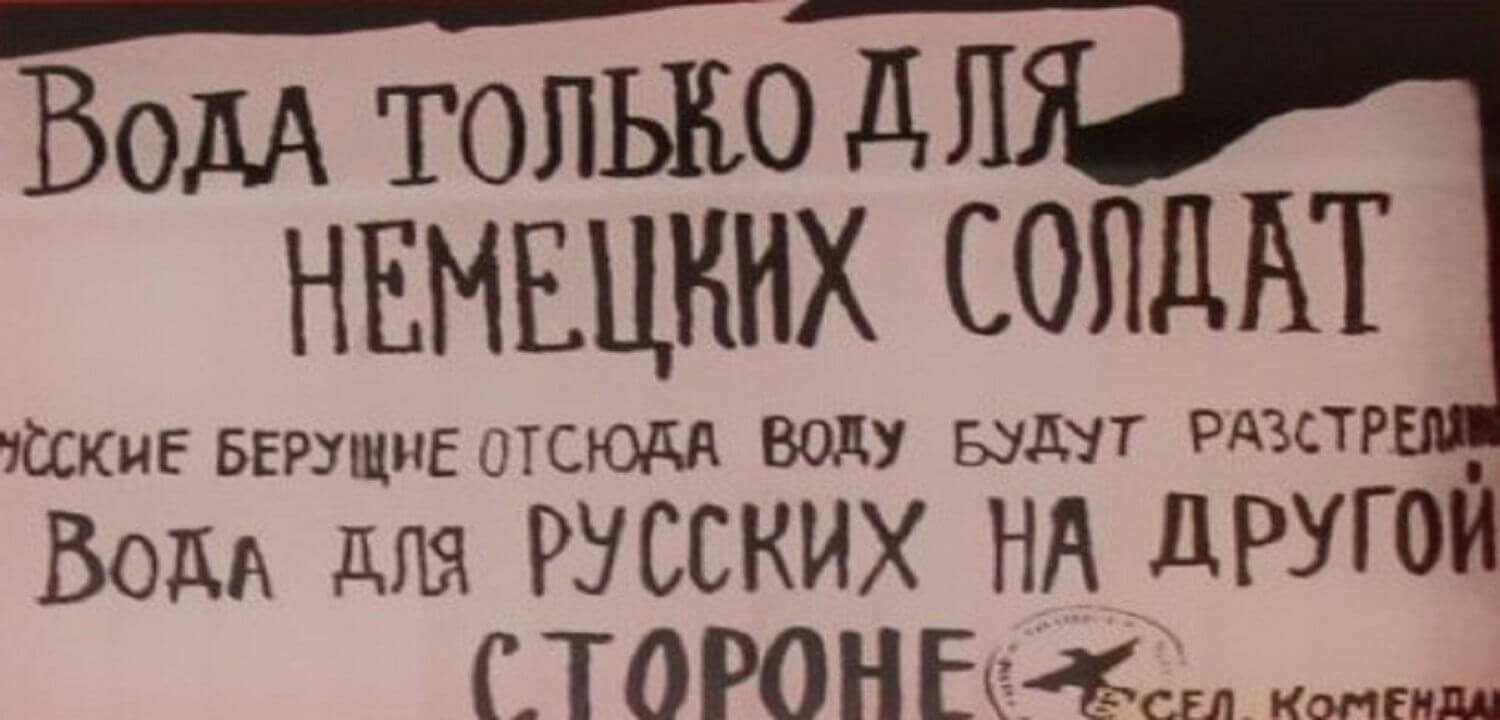 Вода только для
немецких солдат
русские берущие отсюда воду будут разстрел
Вода для русских на другой
стороне
сел. комендан